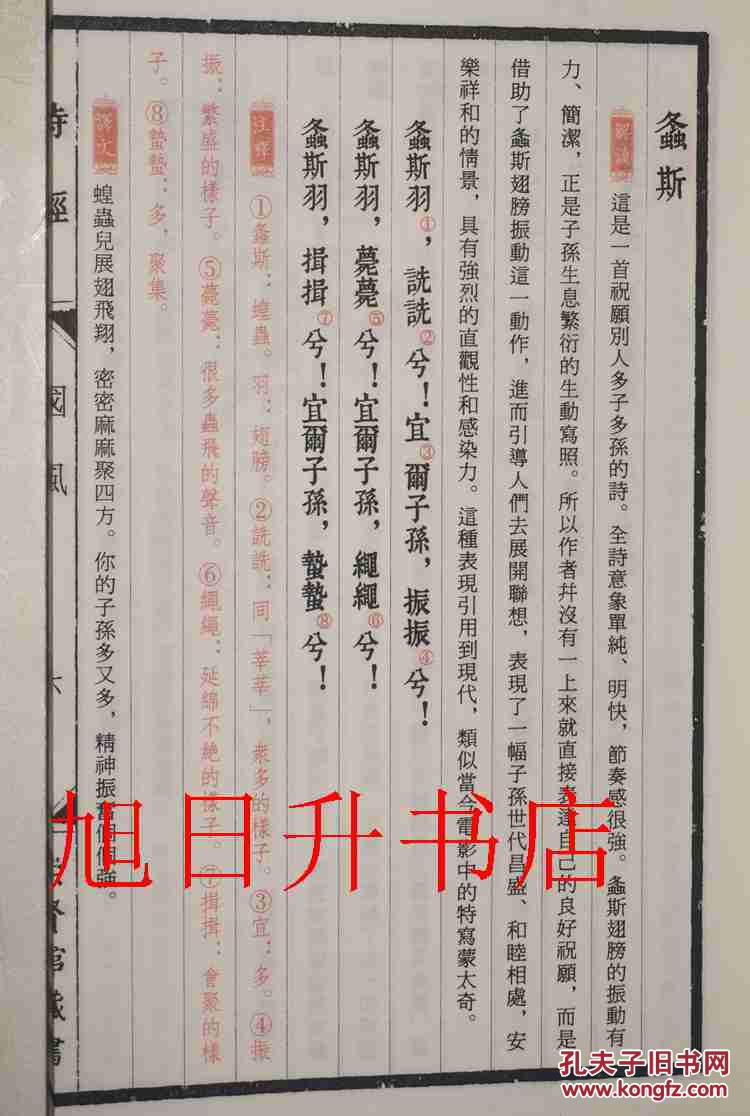 螽斯
解讀 這是一首祝願別人多子多孫的詩。全詩意象單純、明快，節奏感很強。螽斯翅膀的振動有
力、簡潔，正是子孫生息繁衍的生動寫照。所以作者幷沒有一上來就直接表達自己的良好祝願，而是
借助了螽斯翅膀振動這一動作，進而引導人們去展開聯想，表現了一幅子孫世代昌盛、和睦相處，安
樂祥和的情景，具有強烈的直觀性和感染力。這種表現引用到現代，類似當今電影中的特寫蒙太奇。
螽斯羽①，詵詵②兮！宜③爾子孫，振振④兮！
螽斯羽，薨薨⑤兮！宜爾子孫，繩繩⑥兮！
螽斯羽，揖揖⑦兮！宜爾子孫，蟄蟄⑧兮！
注釋 ①螽斯：蝗蟲。羽：翅膀。②詵詵：同「莘莘」，衆多的樣子。③宜：多。④振
振：繁盛的樣子。⑤薨薨：很多蟲飛的聲音。⑥繩繩：延綿不絶的樣子。⑦揖揖：會聚的樣
子。⑧蟄蟄：多，聚集。
譯文 蝗蟲兒展翅飛翔，密密麻麻聚四方。你的子孫多又多，精神振奮個個強。
詩經
國風
六
賢館藏書
旭日升书店
孔夫子旧书网
www.kongfz.com